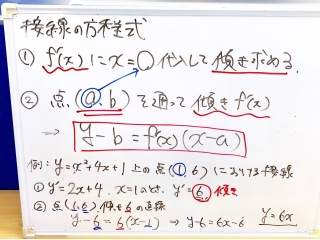 接線の方程式
① f'(x)にx=○代入して傾き求める.
② 点(a,b)を通って傾きf'(x)
→ y-b=f'(x)(x-a)
例: y=x²+4x+1上の点(1,6)における接線
① y'=2x+4. x=1のとき, y'=6 傾き
② 点(1,6)傾き6の直線
y-6=6(x-1) → y-6=6x-6 y=6x